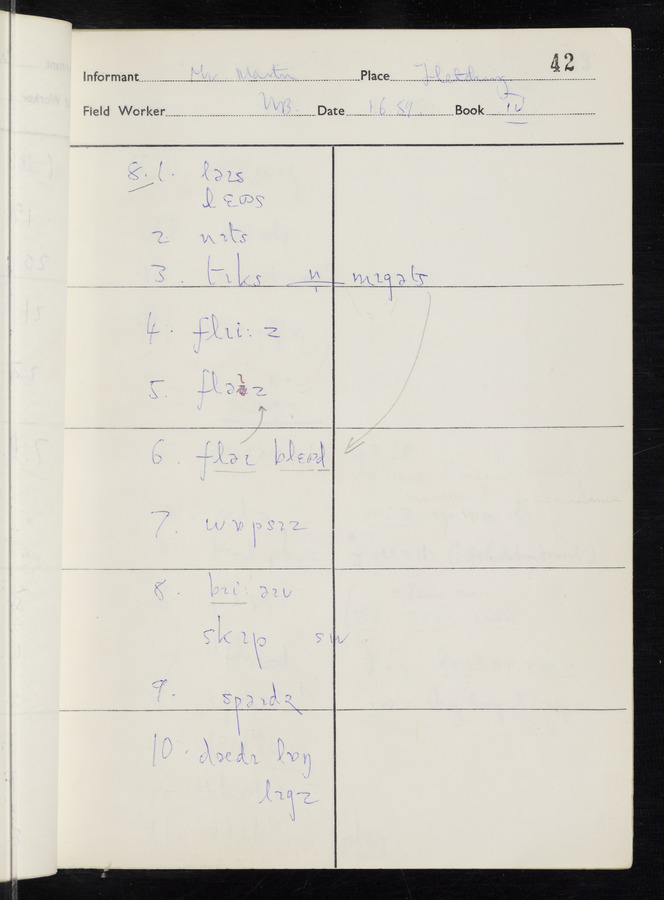 42
Informant Mr. Martin Place Fletching
Field Worker Date 1 6 59. Book IV
8. 1. laɪs
lɛʊs
2 nɪts
3. tɪks n mɪgəts
4. fliː z
5. flaɪz
6. flaɪ blɛʊd
7. wɒpsɪz
8. briː
skɪp
9. spaɪdə
10. dædɪ lɒŋ
lɪgz